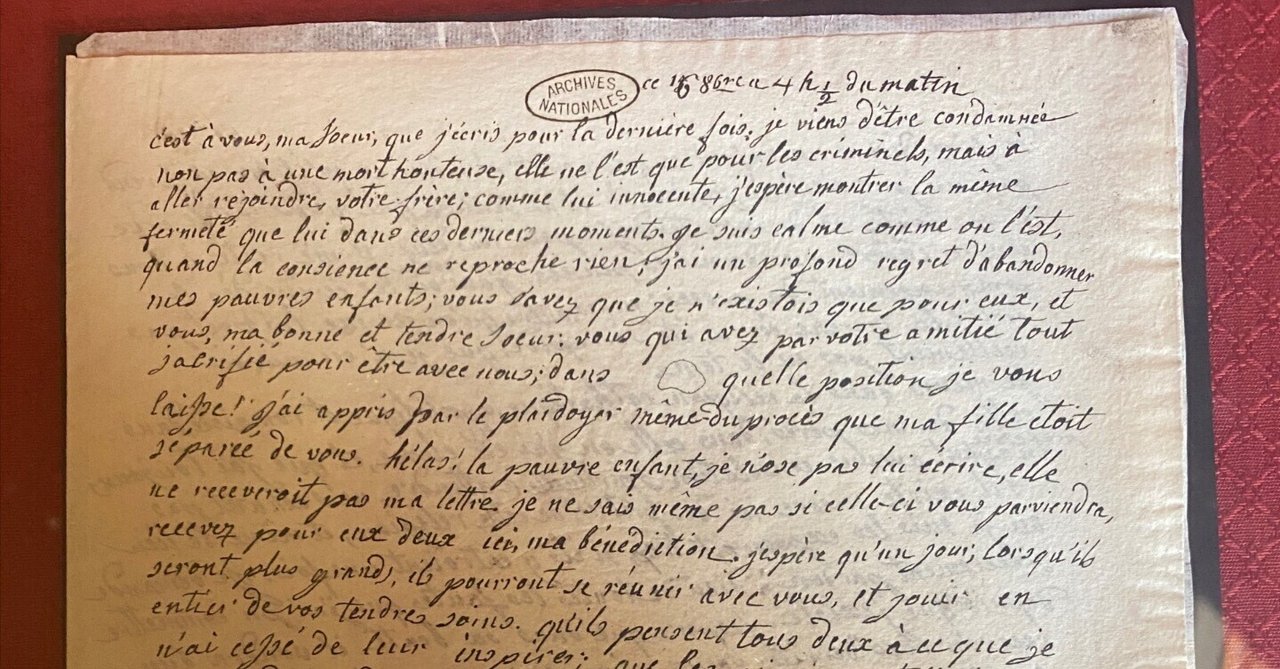 ARCHIVES NATIONALES
ce 16 8bre a 4 h ½ du matin
c'est à vous, ma soeur, que j'écris pour la dernière fois. je viens d'être condamnée
non pas à une mort honteuse, elle ne l'est que pour les criminels, mais à
aller rejoindre, votre frère; comme lui innocente, j'espère montrer la même
fermeté que lui dans ces derniers moments. je suis calme comme on l'est,
quand la consience ne reproche rien, j'ai un profond regret d'abandonner
mes pauvres enfants; vous savez que je n'existois que pour eux, et
vous, ma bonne et tendre soeur: vous qui avez par votre amitié tout
sacrifié pour être avec nous; dans quelle position je vous
laisse! j'ai appris par le plaidoyer même du procès que ma fille étoit
séparée de vous. hélas! la pauvre enfant, je n'ose pas lui écrire, elle
ne receveroit pas ma lettre. je ne sais même pas si celle-ci vous parviendra,
recevez pour eux deux ici, ma bénédiction. j'espère qu'un jour, lorsqu'ils
seront plus grands, ils pourront se réunir avec vous, et jouir en
entier de vos tendres soins. qu'ils pensent tous deux à ce que je
n'ai cessé de leur inspirer; que les